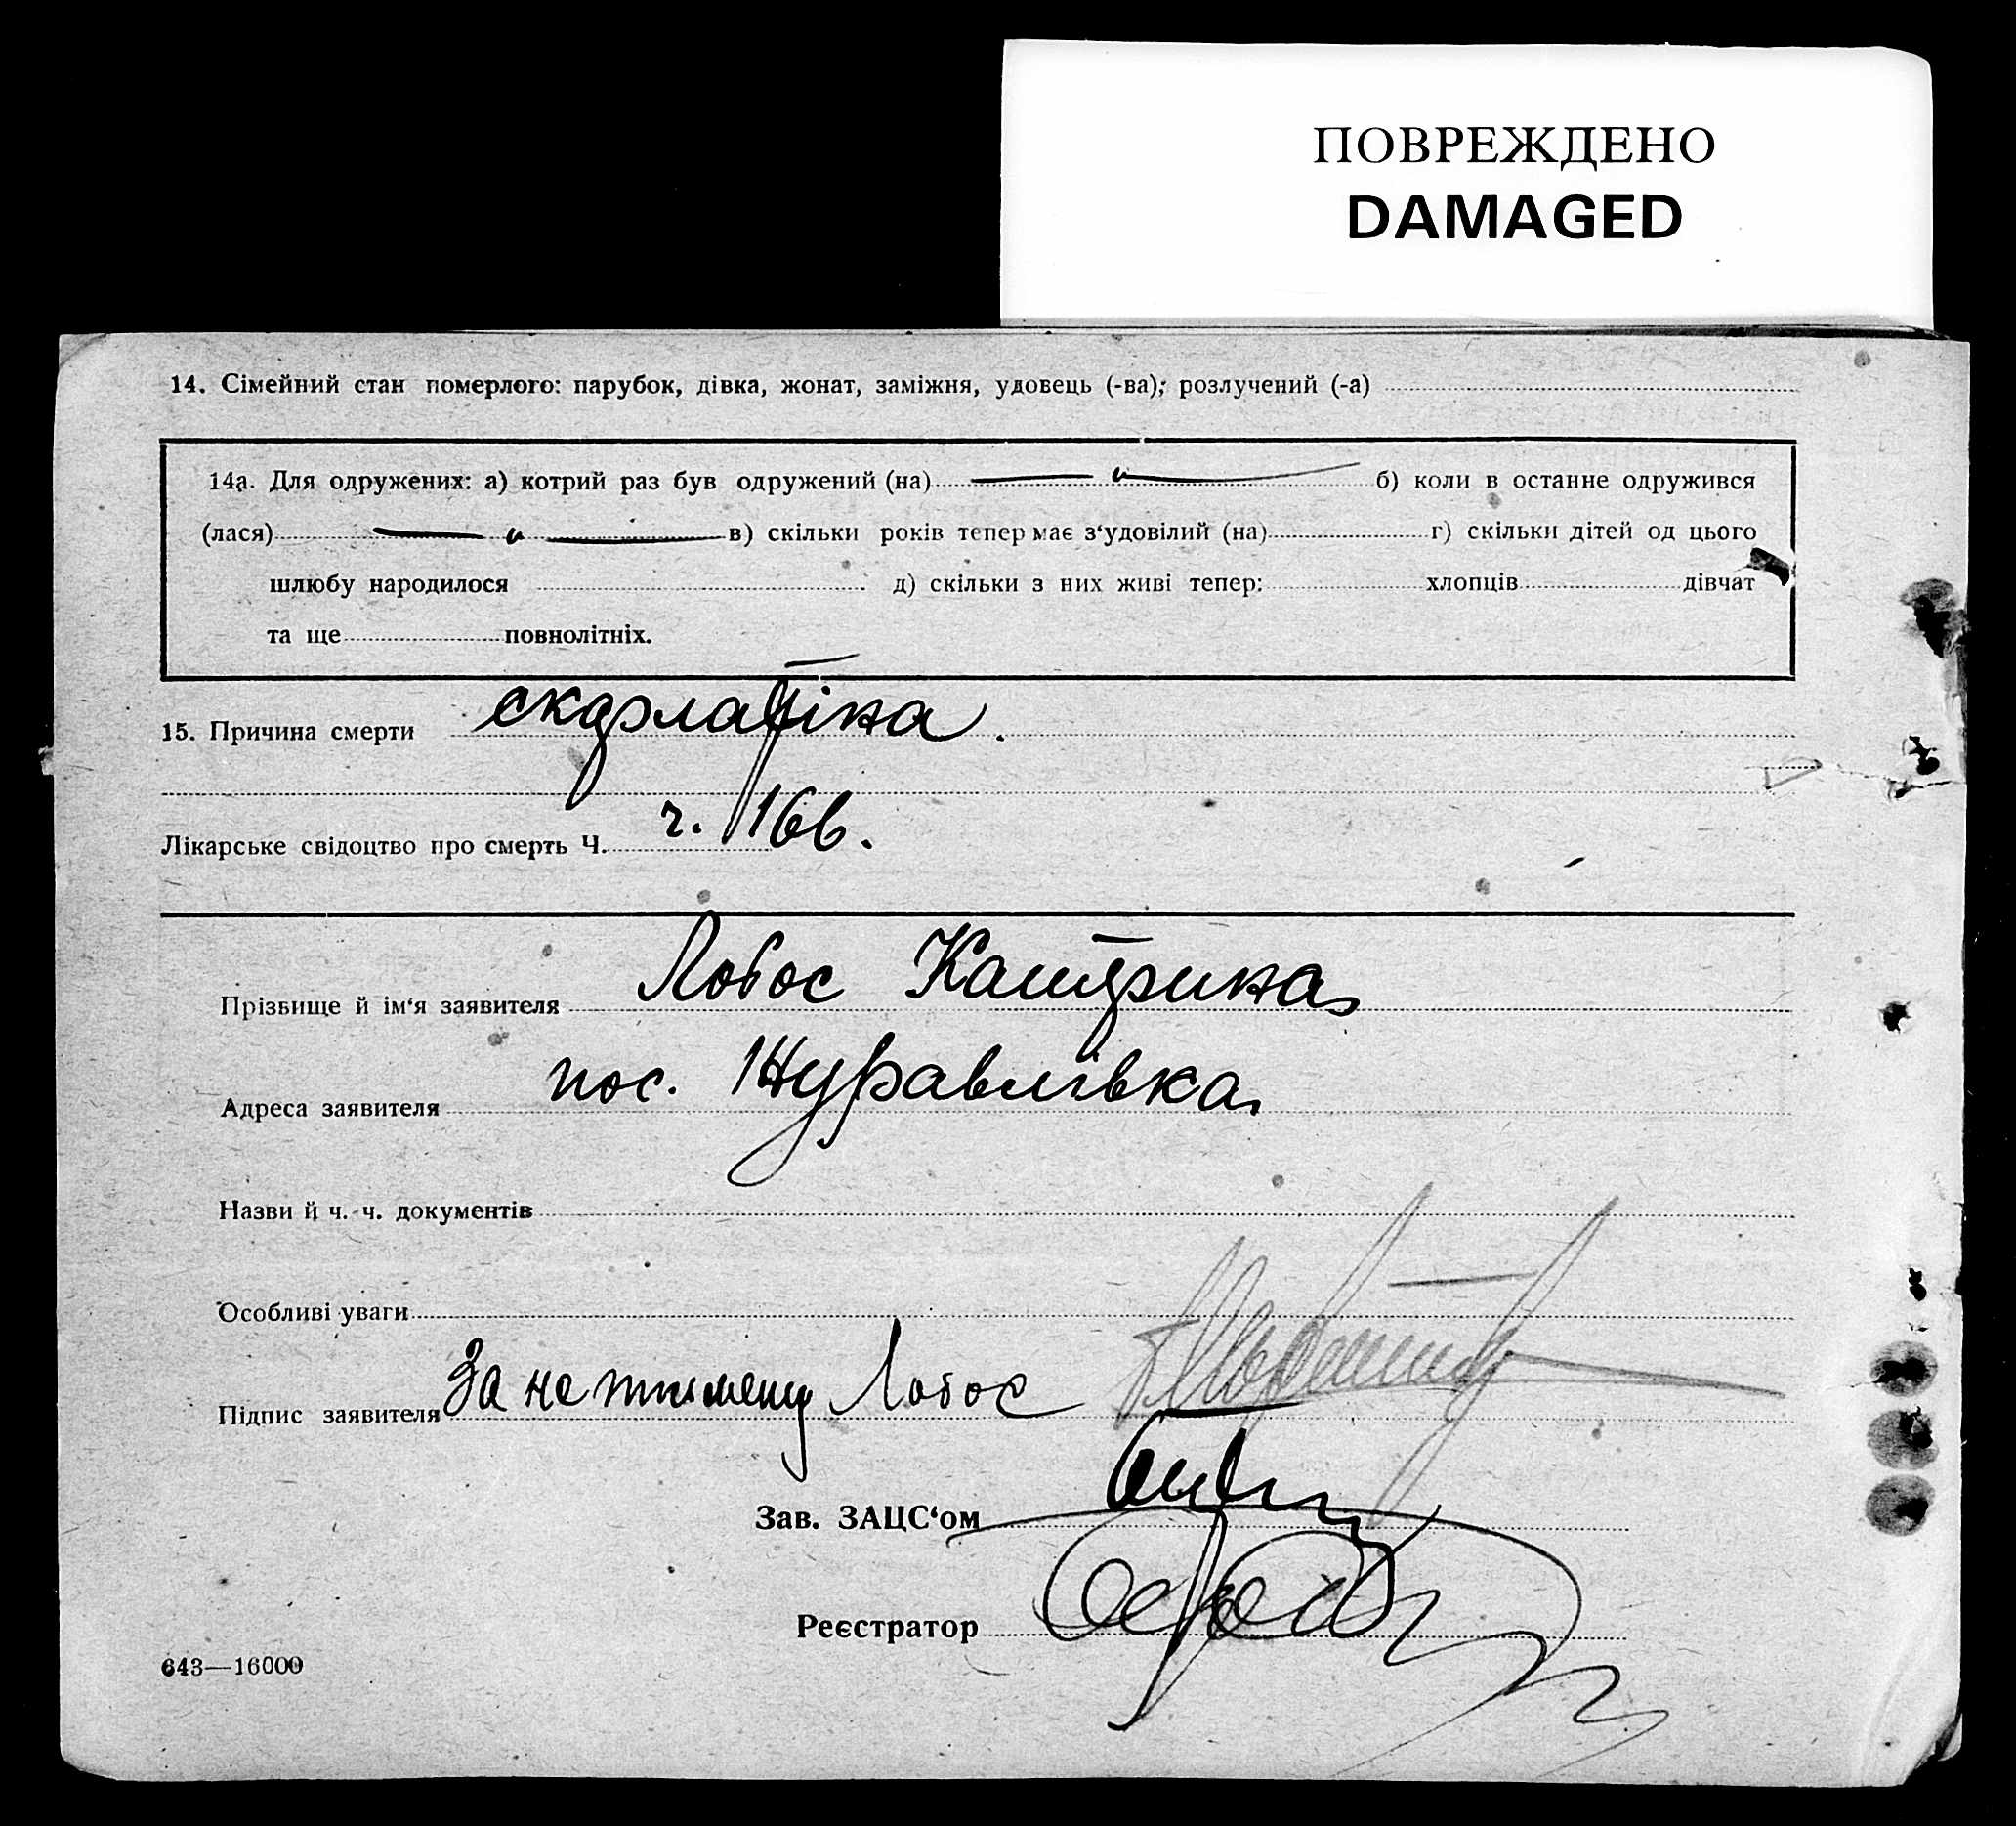 ПОВРЕЖДЕНО
DAMAGED
14. Сімейний стан померлого: парубок, дівка, жонат, заміжня, удовець (-ва); розлучений (-а)
14а. Для одружених: а) котрий раз був одружений (на) — " — б) коли в останне одружився
(лася) — " — в) скільки років тепер має з‘удовілий (на) г) скільки дітей од цього
шлюбу народилося д) скільки з них живі тепер: хлопців дівчат
та ще повнолітніх.
15. Причина смерти скарлатіна.
Лікарське свідоцтво про смерть Ч. ч. 166.
Прізвище й ім‘я заявителя Лобос Катерина
Адреса заявителя пос. Журавлівка
Назви й ч. ч. документів
Особливі уваги
Підпис заявителя За неписьмену Лобос
Зав. ЗАЦС‘ом
Реєстратор
643—16000